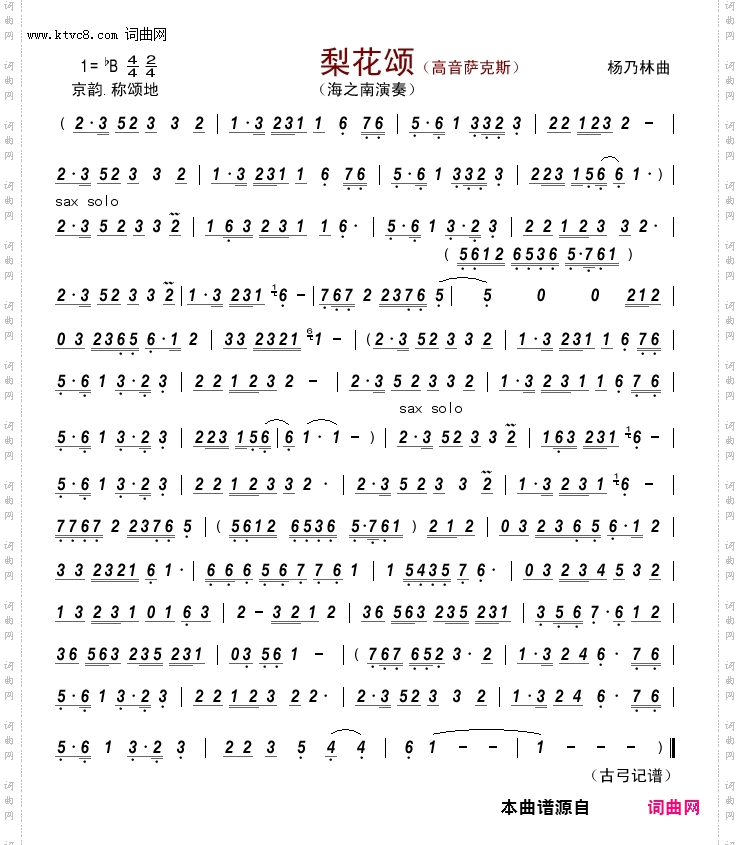 www.ktvc8.com 词曲网
1=♭B 4/4 2/4 梨花颂（高音萨克斯） 杨乃林曲
京韵.称颂地 （海之南演奏）
( 2·3 52 3 3 2 | 1·3 231 1 6 76 | 5·6 1 332 3 | 22 123 2 - |
2·3 52 3 3 2 | 1·3 231 1 6 76 | 5·6 1 332 3 | 223 156 6 1·)
sax solo
2·3 5 2 3 3 2 | 1 6 3 2 3 1 1 6· | 5·6 1 3·2 3 | 2 2 1 2 3 3 2· |
( 5612 6536 5·761 )
2·3 52 3 3 2 | 1·3 231 1 6 - | 767 2 2376 5 | 5 0 0 212
03 2365 6·1 2 | 33 2321 6 1 - | (2·3 52 3 32 | 1·3 231 1 6 76 |
5·6 1 3·2 3 | 2 2 1 2 3 2 - | 2·3 5 2 3 3 2 | 1·3 2 3 1 1 6 7 6 |
sax solo
5·6 1 3·2 3 | 223 156 | 6 1·1 - ) | 2·3 52 3 3 2 | 163 231 1 6 - |
5·6 1 3·2 3 | 2 2 1 2 3 3 2· | 2·3 52 3 3 2 | 1·3 2 3 1 1 6 - |
7767 2 2376 5 | ( 5612 6536 5·761 ) 2 1 2 | 03 2 3 6 5 6·1 2 |
3 3 2321 6 1· | 6 6 6 5 6 7 7 6 1 | 1 5435 7 6· | 0 3 2 3 4 5 3 2 |
1 3 2 3 1 0 1 6 3 | 2 - 3 2 1 2 | 36 563 235 231 | 3 5 6 7·6 1 2 |
36 563 235 231 | 03 56 1 - | ( 767 652 3·2 | 1·3 2 4 6· 7 6 |
5·6 1 3·2 3 | 2 2 1 2 3 2 2· | 2·3 52 3 3 2 | 1·3 24 6· 7 6 |
5·6 1 3·2 3 | 2 2 3 5 4 4 | 6 1 - - | 1 - - - )
（古弓记谱）
本曲谱源自 词曲网